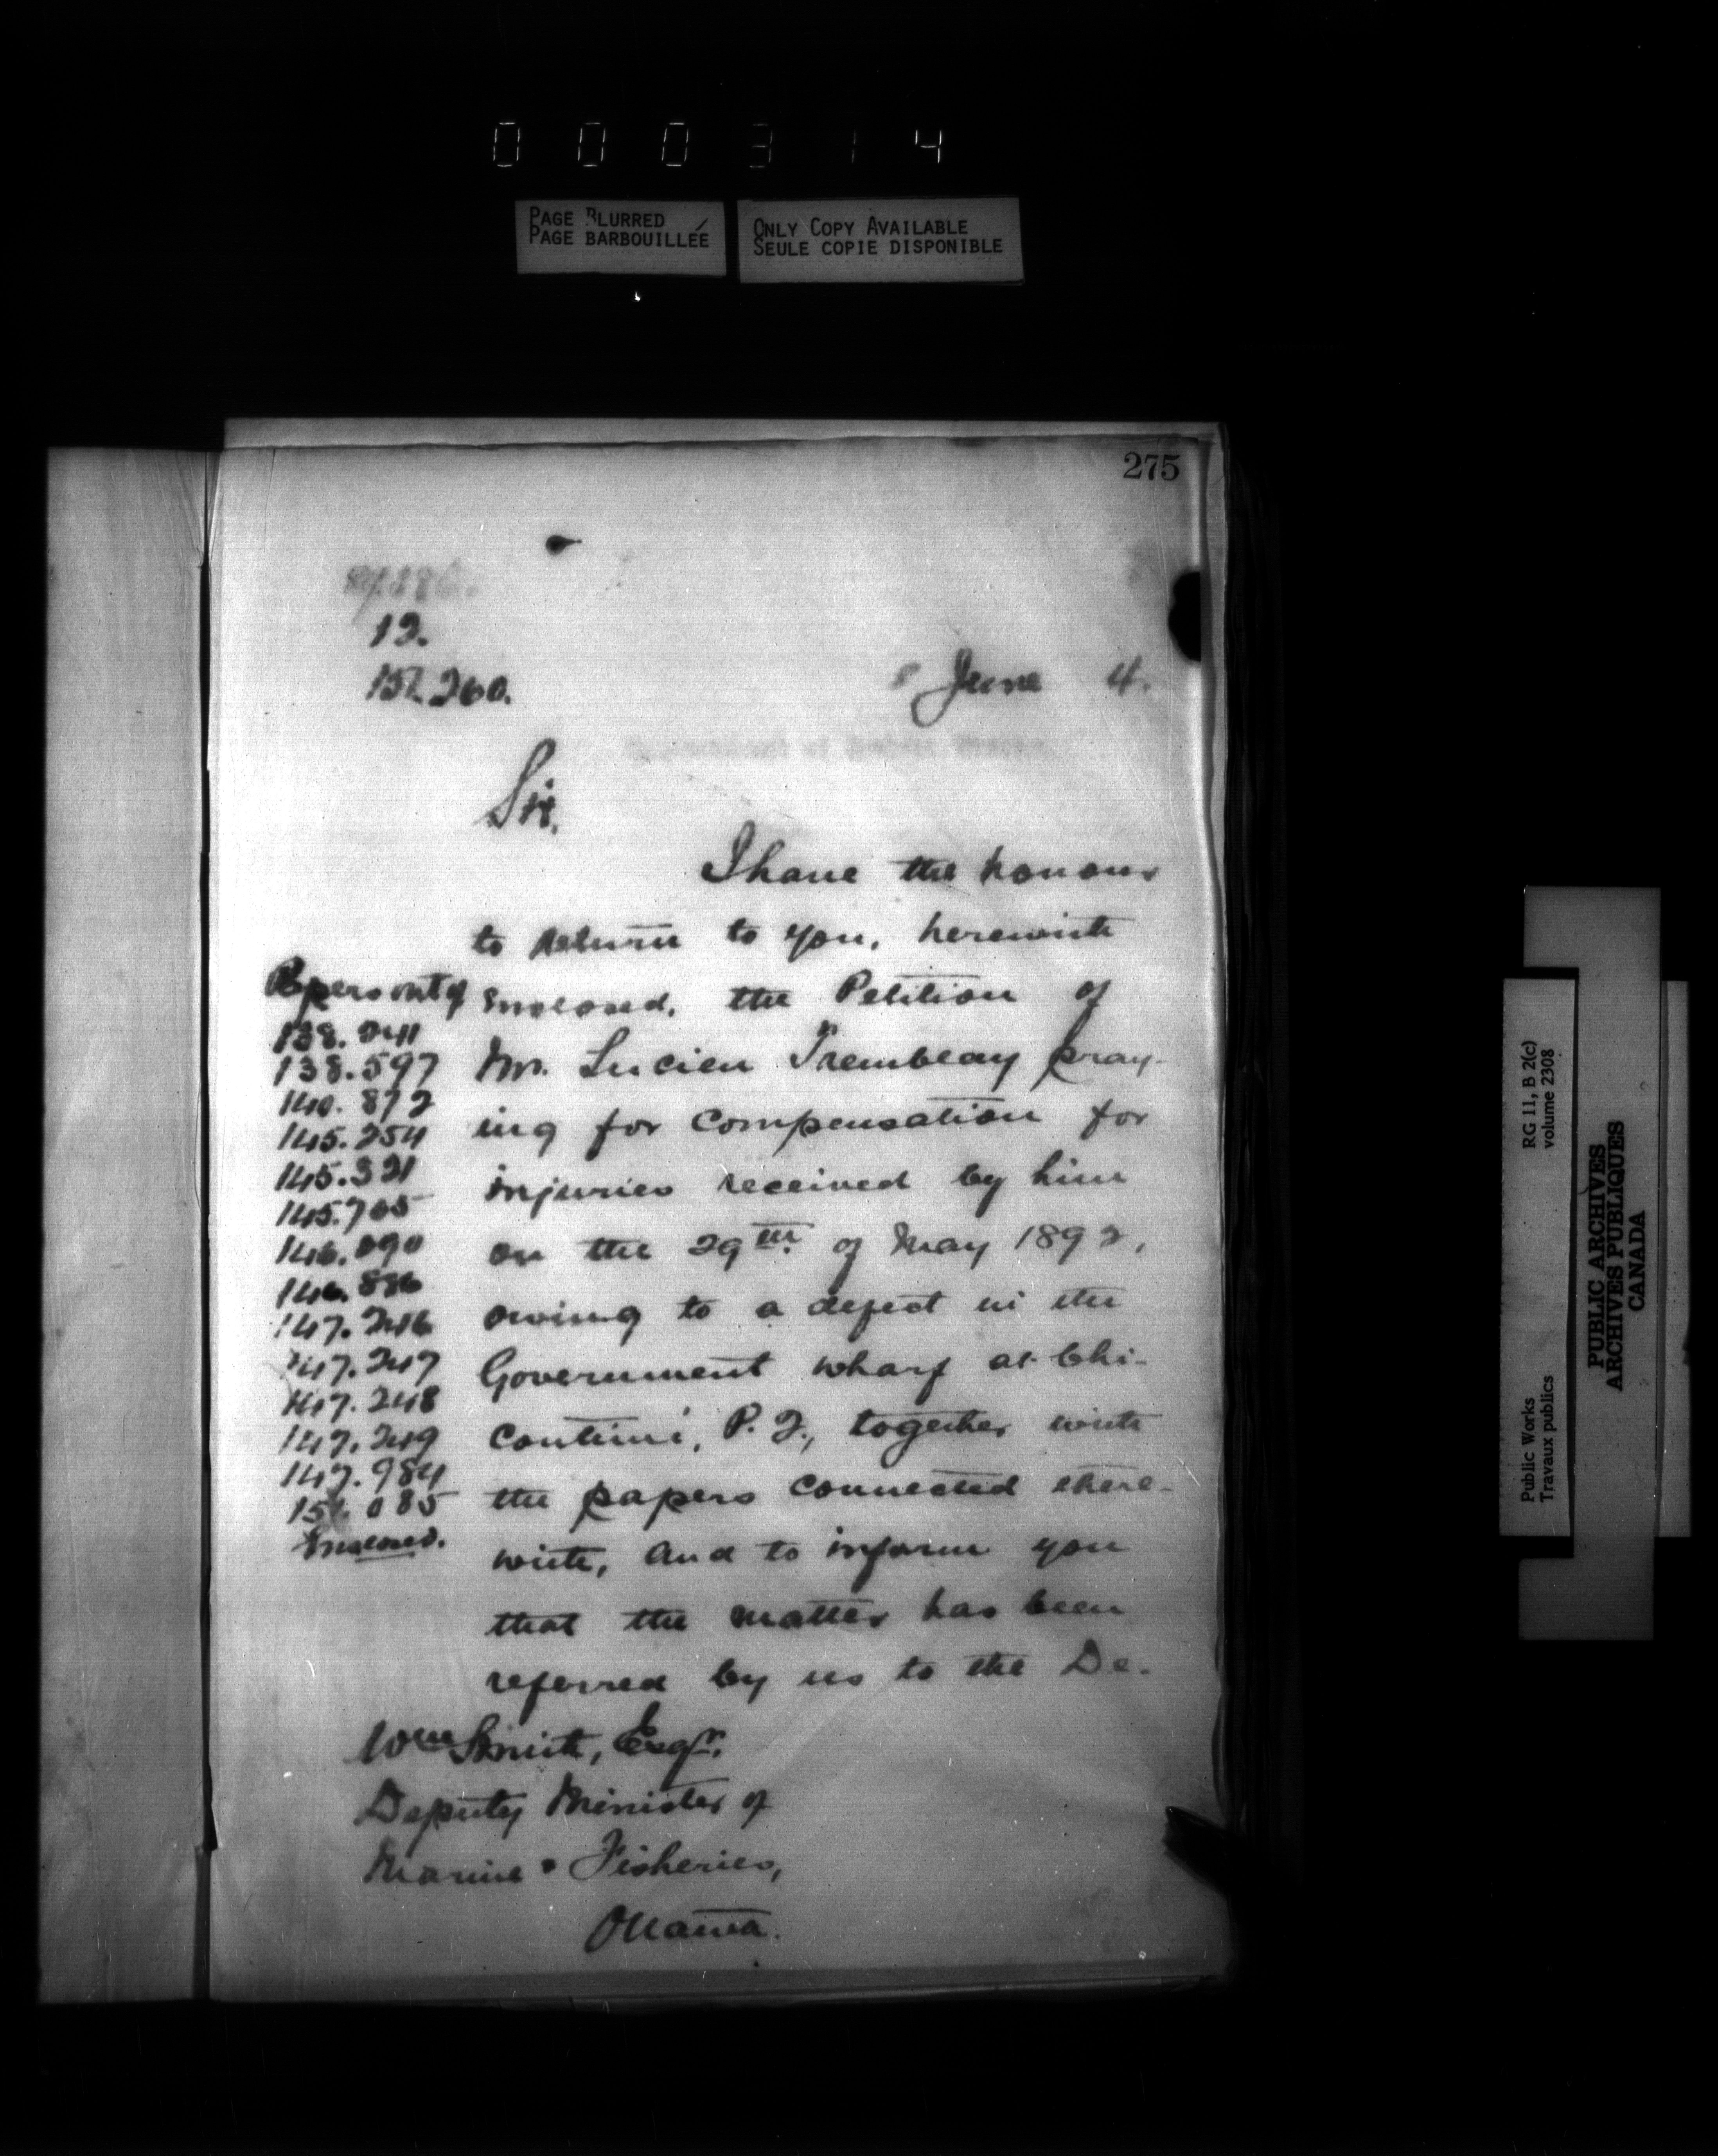 000314
PAGE BLURRED
PAGE BARBOUILLÉE
ONLY COPY AVAILABLE
SEULE COPIE DISPONIBLE
275
12.
157.260.
June 4.
Sir,
I have the honour
to return to you, herewith
enclosed, the Petition of
Mr. Lucien Tremblay pray-
ing for compensation for
injuries received by him
on the 29th of May 1892,
owing to a defect in the
Government wharf at Chi-
coutimi, P. Q., together with
the papers connected there-
with, and to inform you
that the matter has been
referred by us to the De-
Papers out of
138.241
138.597
140.872
145.254
145.321
145.765
146.090
146.886
147.246
147.247
147.248
147.249
147.984
085
Enclosed.
Wm Smith, Esqr.
Deputy Minister of
Marine & Fisheries,
Ottawa.
Public Works
Travaux publics
RG 11, B 2(c)
volume 2308
PUBLIC ARCHIVES
ARCHIVES PUBLIQUES
CANADA